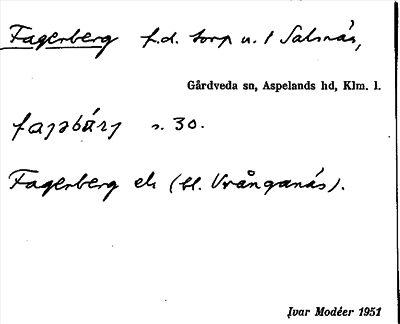 Fagerberg f.d. torp u. 1 Salsnäs,
Gårdveda sn, Aspelands hd, Klm. l.
s. 30.
Fagerberg el. (bl. Vrånganäs).
Ivar Modéer 1951